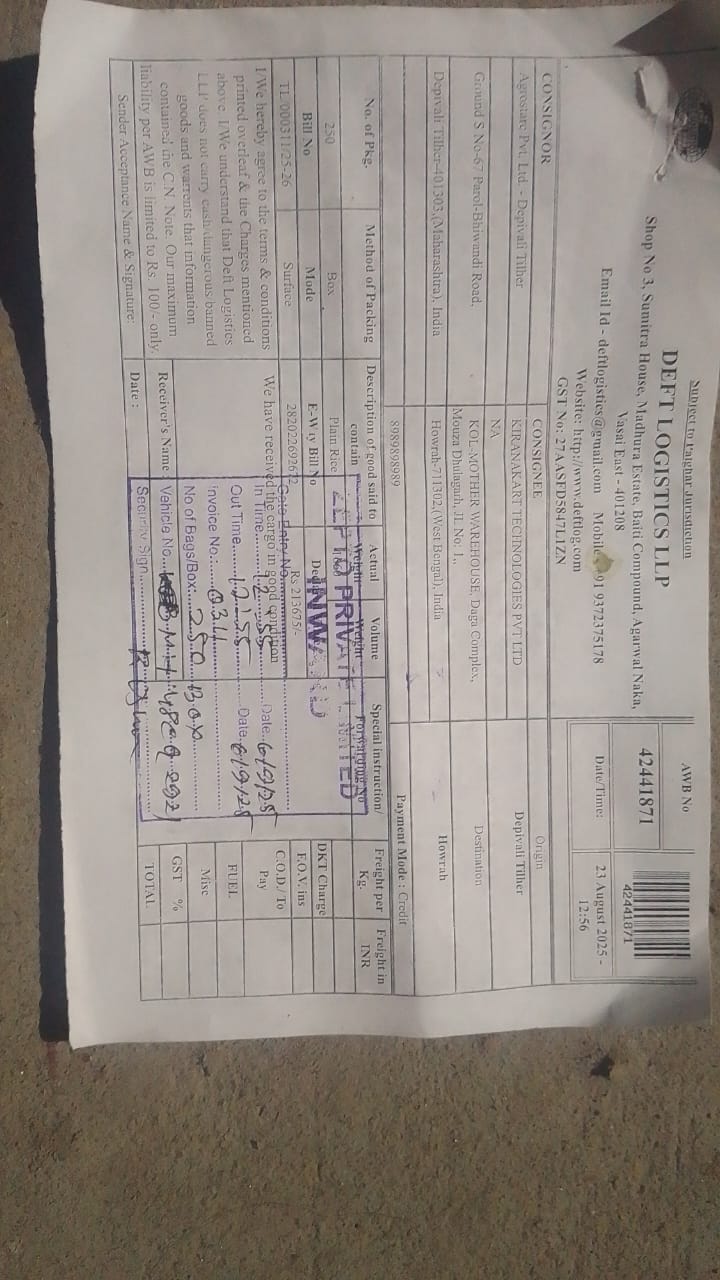 Subject to Palghar Jurisdiction
DEFT LOGISTICS LLP
Shop No 3, Sumitra House, Madhura Estate, Batti Compound, Agarwal Naka,
Vasai East - 401208
Email Id - deftlogistics@gmail.com Mobile 91 9372375178
Website: http://www.deftlog.com
GST No: 27AASFD5847L1ZN
AWB No
42441871
42441871
Date/Time:
23 August 2025 -
12:56
CONSIGNOR
CONSIGNEE
Origin
Agrostarc Pvt. Ltd. - Depivali Tilher
KIRANAKART TECHNOLOGIES PVT LTD
Depivali Tilher
NA
Ground S No-67 Parol-Bhiwandi Road,
KOL-MOTHER WAREHOUSE, Daga Complex,
Destination
Mouza Dhulagarh, JL No 1,,
Depivali Tilher-401303,(Maharashtra), India
Howrah-711302,(West Bengal), India
Howrah
8989898989
Payment Mode : Credit
No. of Pkg.
Method of Packing
Description of good said to
contain
Actual
Weight
Volume
Weight
Special instruction/
Forwarding No
Freight per
Kg.
Freight in
INR
250
Box
Plain Rice
DKT Charge
Bill No
Mode
E-Way Bill No
F.O.V. ins
TL/000311/25-26
Surface
282022692672
Rs 213675/-
C.O.D./ To
Pay
I/We hereby agree to the terms & conditions
printed overleaf & the Charges mentioned
above. I/We understand that Deft Logistics
LLP does not carry cash/dangerous/banned
goods and warrents that information
contained the C.N. Note. Our maximum
liability per AWB is limited to Rs. 100/- only.
Sender Acceptance Name & Signature:
We have received the cargo in good condition
Receiver's Name
Date :
FUEL
Misc
GST %
TOTAL
PRIVATE
INWARD
Gate Entry No.
In Time 12:55 Date 6/9/25
Out Time 17:55 Date 6/9/25
Invoice No.: 0311
No of Bags/Box: 250 Box
Vehicle No.
Security Sign